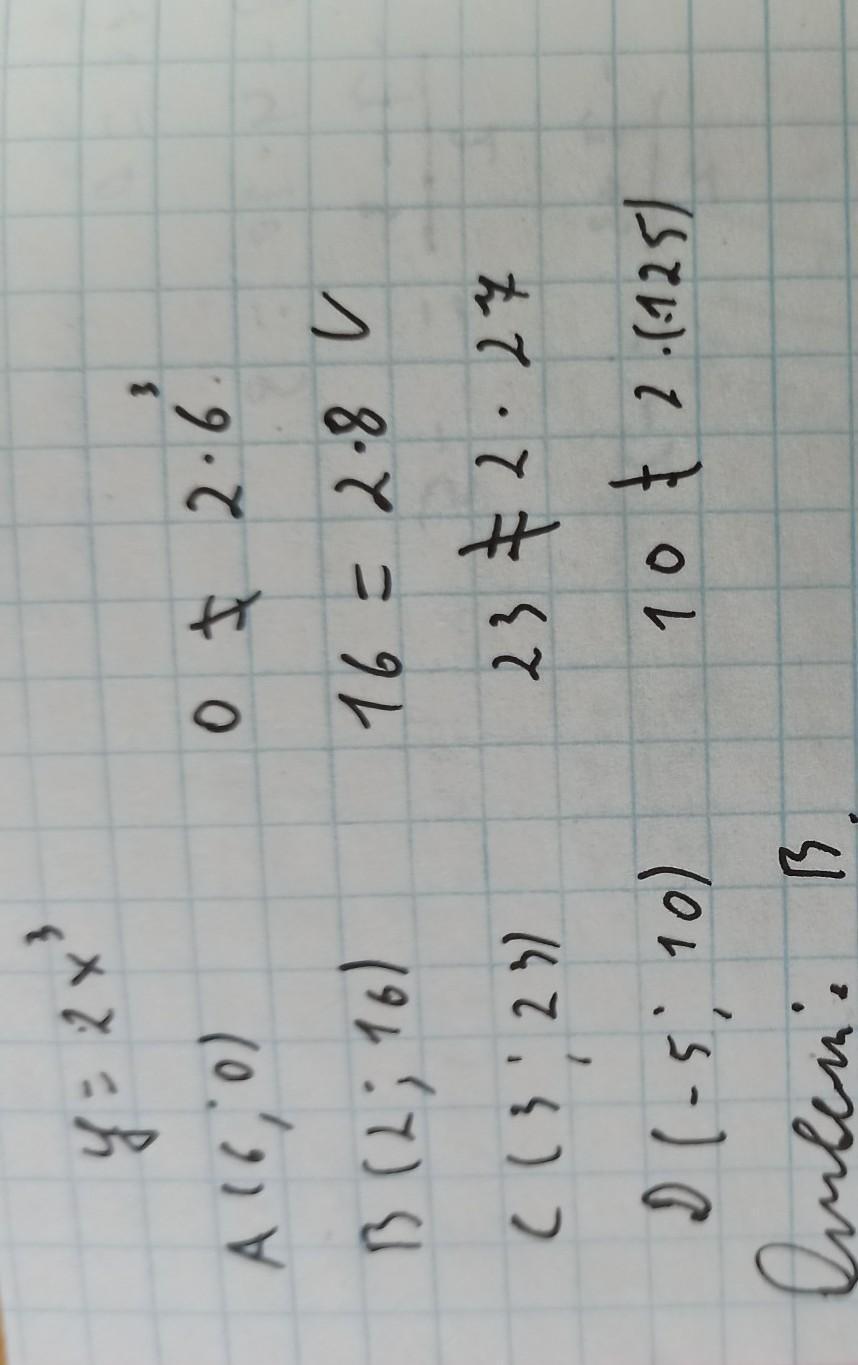 y = 2x³
A (6; 0) 0 ≠ 2·6³
B (2; 16) 16 = 2·8 V
C (3; 23) 23 ≠ 2·27
D (-5; 10) 10 ≠ 2·(-125)
Ответ: B.